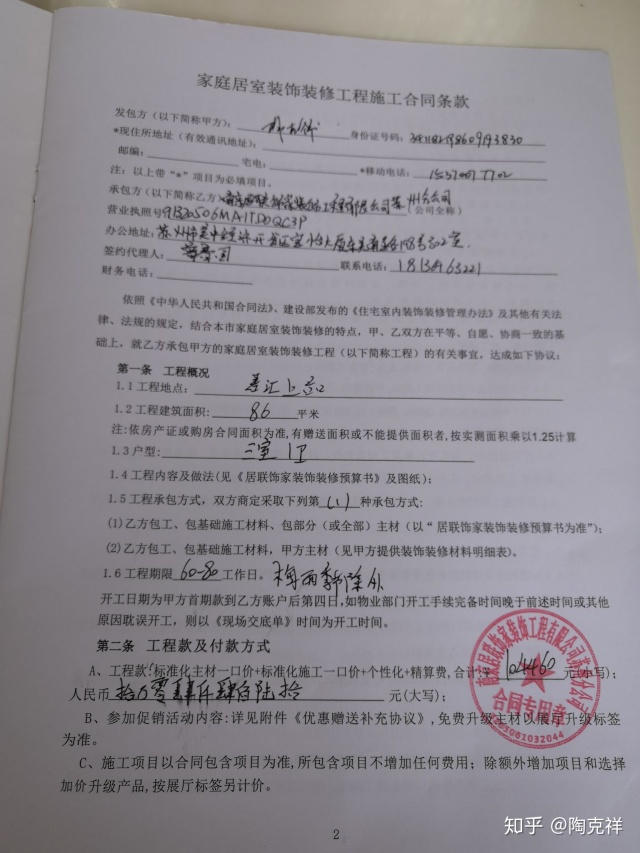 家庭居室装饰装修工程施工合同条款
发包方（以下简称甲方）： 身份证号码：
*现住所地址（有效通讯地址）：
邮编： 宅电： *移动电话：
注：以上带“*”项目为必填项目。
承包方（以下简称乙方） 州分公司（公司全称）
营业执照号
办公地址:
签约代理人： 联系电话：
财务电话：
依照《中华人民共和国合同法》、建设部发布的《住宅室内装饰装修管理办法》及其他有关法
律、法规的规定，结合本市家庭居室装饰装修的特点，甲、乙双方在平等、自愿、协商一致的基
础上，就乙方承包甲方的家庭居室装饰装修工程（以下简称工程）的有关事宜，达成如下协议：
第一条 工程概况
1.1 工程地点：
1.2 工程建筑面积: 86 平米
注:依房产证或购房合同面积为准,有赠送面积或不能提供面积者,按实测面积乘以1.25计算
1.3 户型: 三室 1卫
1.4 工程内容及做法(见《居联饰家装饰装修预算书》及图纸);
1.5 工程承包方式，双方商定采取下列第 (1) 种承包方式:
(1)乙方包工、包基础施工材料、包部分（或全部）主材（以“居联饰家装饰装修预算书为准”);
(2)乙方包工、包基础施工材料，甲方主材（见甲方提供装饰装修材料明细表)。
1.6 工程期限 60-80 工作日。梅雨季除外
开工日期为甲方首期款到乙方账户后第四日,如物业部门开工手续完备时间晚于前述时间或其他
原因耽误开工，则以《现场交底单》时间为开工时间。
第二条 工程款及付款方式
A、工程款:标准化主材一口价+标准化施工一口价+个性化+精算费,合计: 104460 元(小写);
人民币 拾万零肆仟肆佰陆拾 元(大写);
B、参加促销活动内容:详见附件《优惠赠送补充协议》,免费升级主材以展厅升级标签
为准。
C、施工项目以合同包含项目为准,所包含项目不增加任何费用；除额外增加项目和选择
加价升级产品,按展厅标签另计价。
合同专用章
2
知乎 @陶克祥